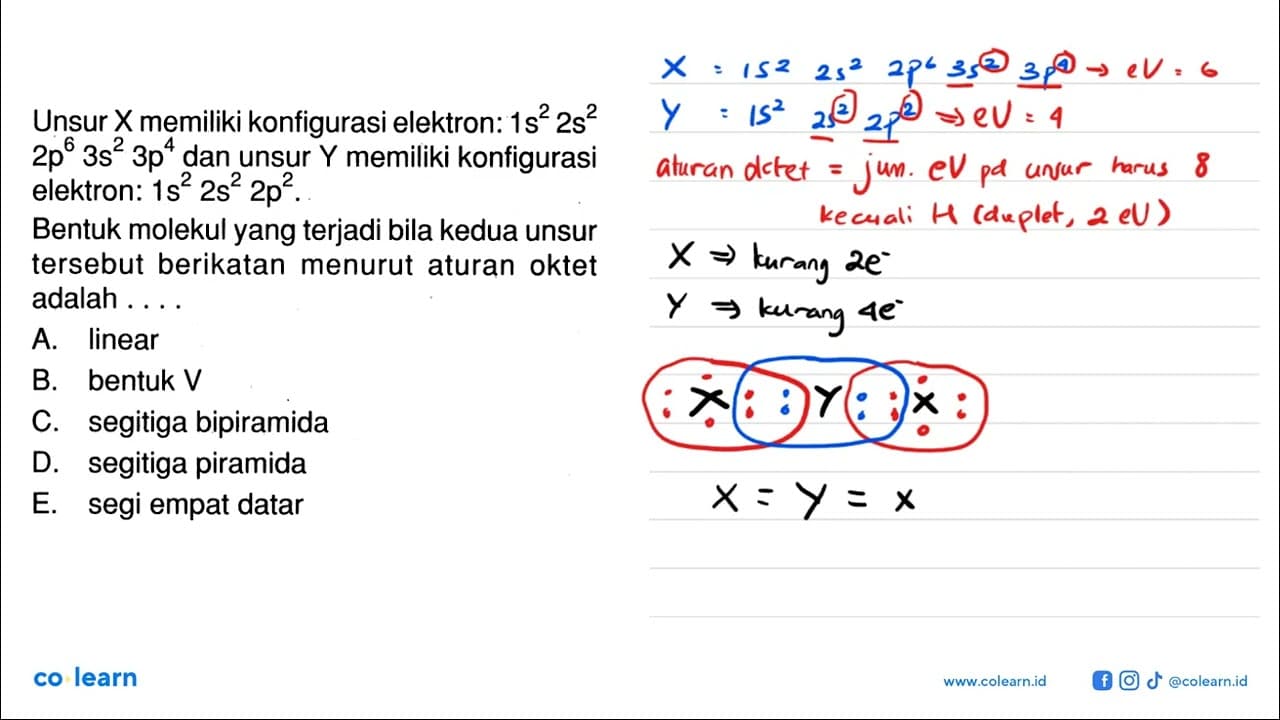 Unsur X memiliki konfigurasi elektron: 1s² 2s²
2p⁶ 3s² 3p⁴ dan unsur Y memiliki konfigurasi
elektron: 1s² 2s² 2p².
Bentuk molekul yang terjadi bila kedua unsur
tersebut berikatan menurut aturan oktet
adalah . . . .
A. linear
B. bentuk V
C. segitiga bipiramida
D. segitiga piramida
E. segi empat datar
X = 1s² 2s² 2p⁶ 3s² 3p⁴ → eV = 6
Y = 1s² 2s² 2p² ⇒ eV = 4
aturan oktet = jum. eV pd unsur harus 8
kecuali H (duplet, 2 eV)
X ⇒ kurang 2e⁻
Y ⇒ kurang 4e⁻
: X : : Y : : X :
X = Y = X
co learn
www.colearn.id
@colearn.id